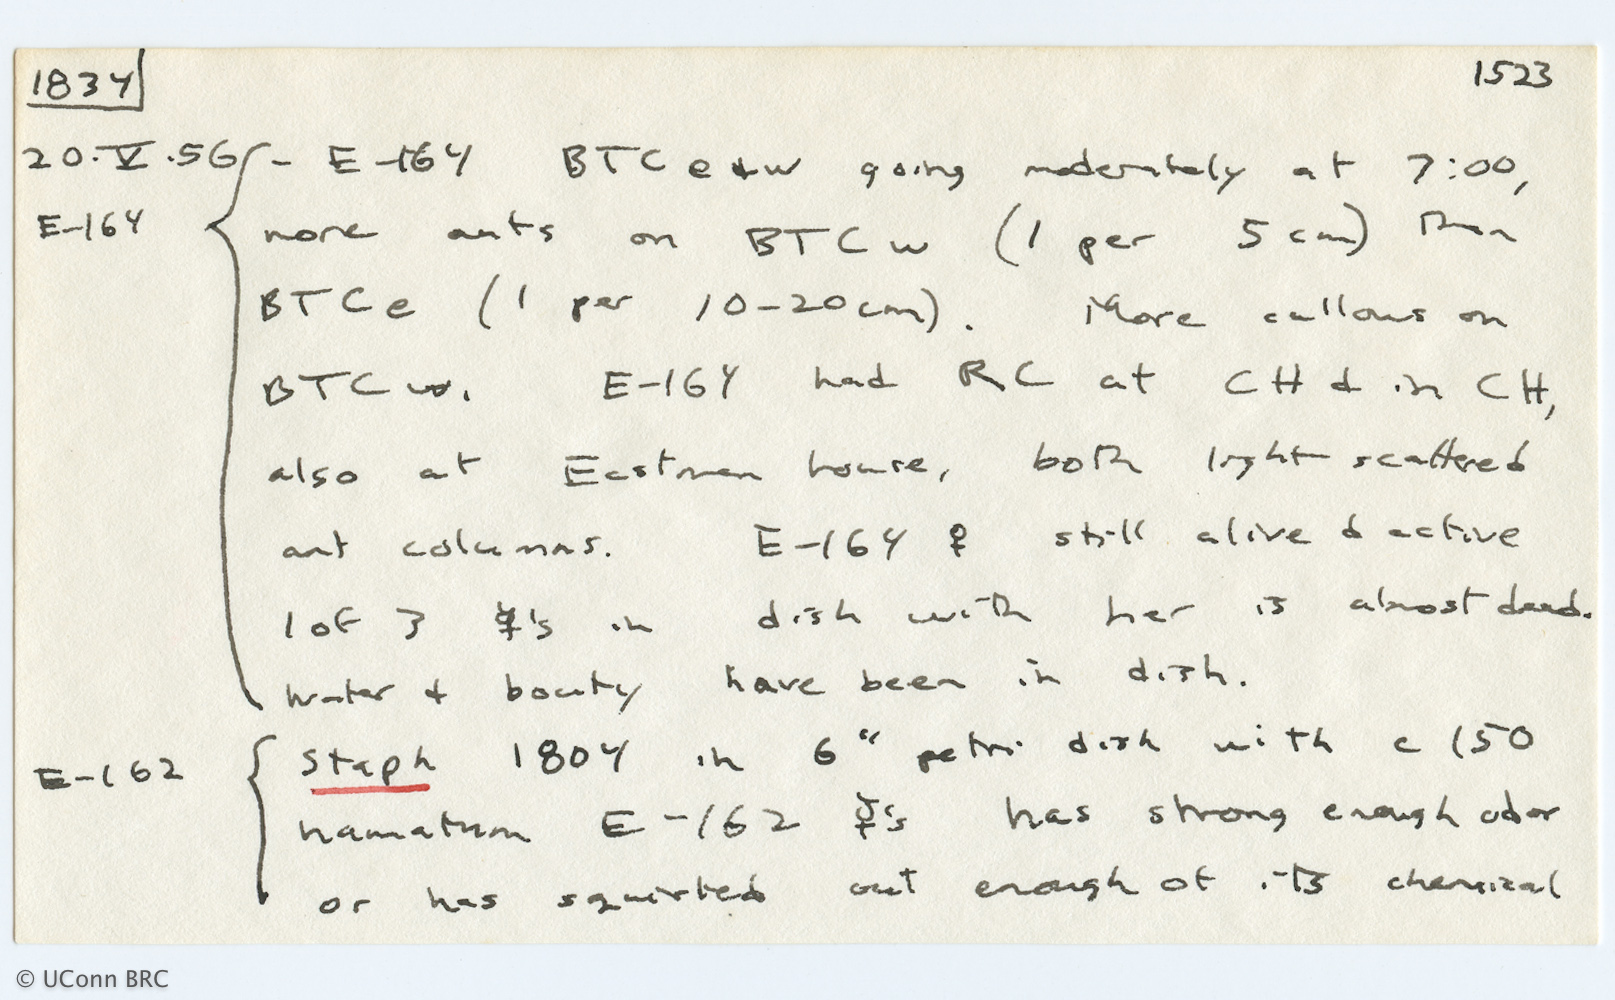 1834 1523
20.V.56 - E-164 BTCe+w going moderately at 7:00,
E-164 more ants on BTCw (1 per 5cm) than
BTCe (1 per 10-20cm). More callows on
BTCw. E-164 had RC at CH & in CH,
also at Eastman house, both light scattered
ant columns. E-164 ♀ still alive & active
1 of 3 ☿'s in dish with her is almost dead.
Water & booty have been in dish.
E-162 Staph 1804 in 6" petri dish with c 150
hamatum E-162 ☿'s has strong enough odor
or has squirted out enough of its chemical
© UConn BRC